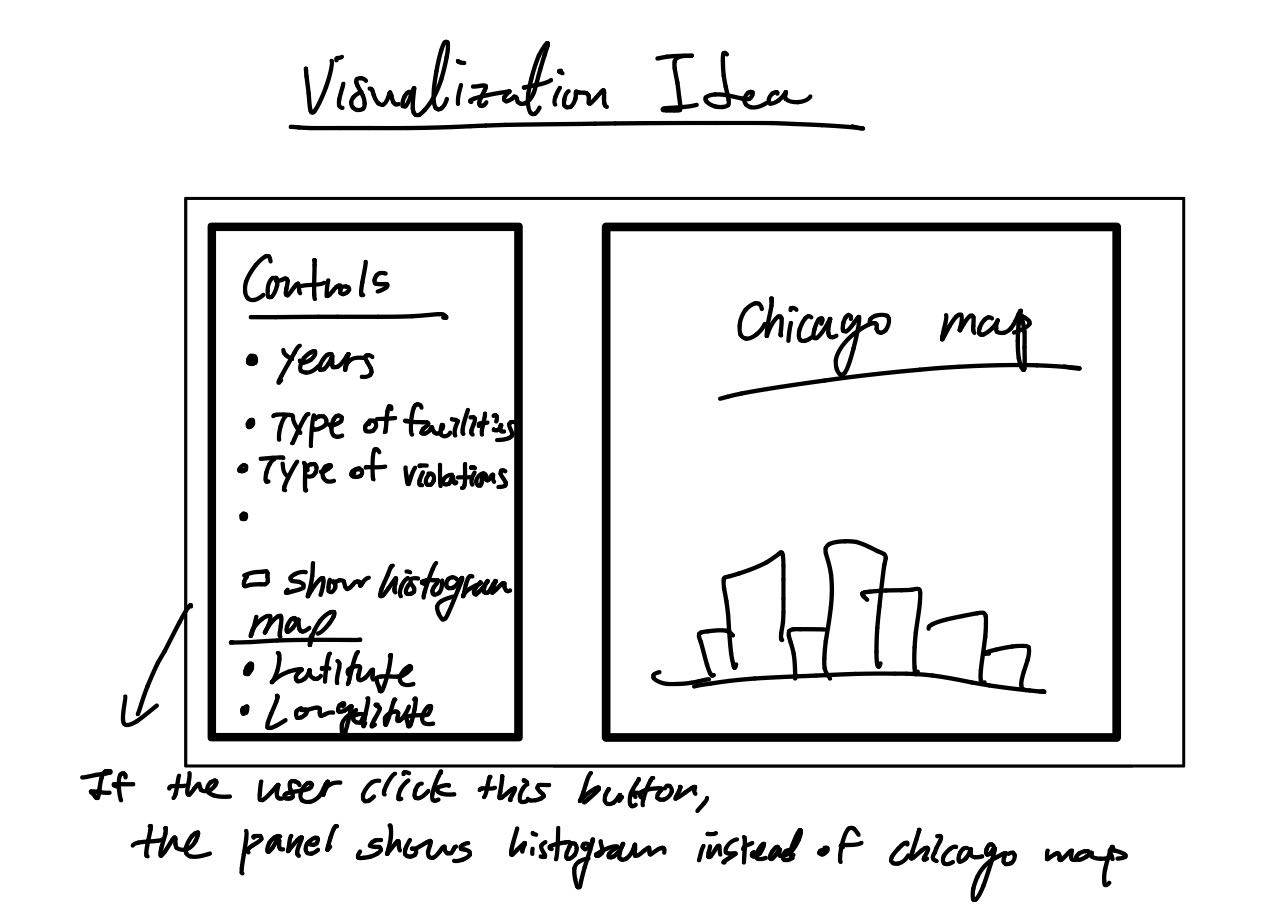 Visualization Idea
Controls
• Years
• Type of facilities
• Type of violations
•
show histogram
map
• Latitute
• Longtitute
Chicago map
If the user click this button,
the panel shows histogram instead of chicago map